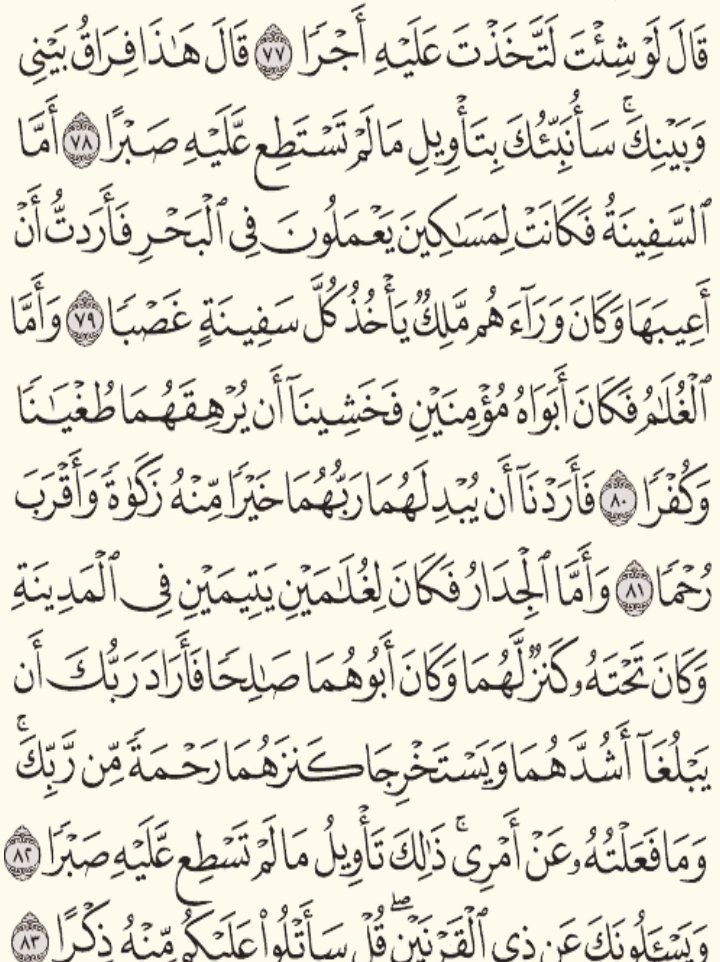 قَالَ لَوْ شِئْتَ لَتَّخَذْتَ عَلَيْهِ أَجْرًا ٧٧ قَالَ هَٰذَا فِرَاقُ بَيْنِى
وَبَيْنِكَ ۚ سَأُنَبِّئُكَ بِتَأْوِيلِ مَا لَمْ تَسْتَطِع عَّلَيْهِ صَبْرًا ٧٨ أَمَّا
ٱلسَّفِينَةُ فَكَانَتْ لِمَسَٰكِينَ يَعْمَلُونَ فِى ٱلْبَحْرِ فَأَرَدتُّ أَنْ
أَعِيبَهَا وَكَانَ وَرَآءَهُم مَّلِكٌ يَأْخُذُ كُلَّ سَفِينَةٍ غَصْبًا ٧٩ وَأَمَّا
ٱلْغُلَٰمُ فَكَانَ أَبَوَاهُ مُؤْمِنَيْنِ فَخَشِينَآ أَن يُرْهِقَهُمَا طُغْيَٰنًا
وَكُفْرًا ٨٠ فَأَرَدْنَآ أَن يُبْدِلَهُمَا رَبُّهُمَا خَيْرًا مِّنْهُ زَكَوٰةً وَأَقْرَبَ
رُحْمًا ٨١ وَأَمَّا ٱلْجِدَارُ فَكَانَ لِغُلَٰمَيْنِ يَتِيمَيْنِ فِى ٱلْمَدِينَةِ
وَكَانَ تَحْتَهُۥ كَنزٌ لَّهُمَا وَكَانَ أَبُوهُمَا صَٰلِحًا فَأَرَادَ رَبُّكَ أَن
يَبْلُغَآ أَشُدَّهُمَا وَيَسْتَخْرِجَا كَنزَهُمَا رَحْمَةً مِّن رَّبِّكَ ۚ
وَمَا فَعَلْتُهُۥ عَنْ أَمْرِى ۚ ذَٰلِكَ تَأْوِيلُ مَا لَمْ تَسْطِع عَّلَيْهِ صَبْرًا ٨٢
وَيَسْـَٔلُونَكَ عَن ذِى ٱلْقَرْنَيْنِ ۖ قُلْ سَأَتْلُوا۟ عَلَيْكُم مِّنْهُ ذِكْرًا ٨٣